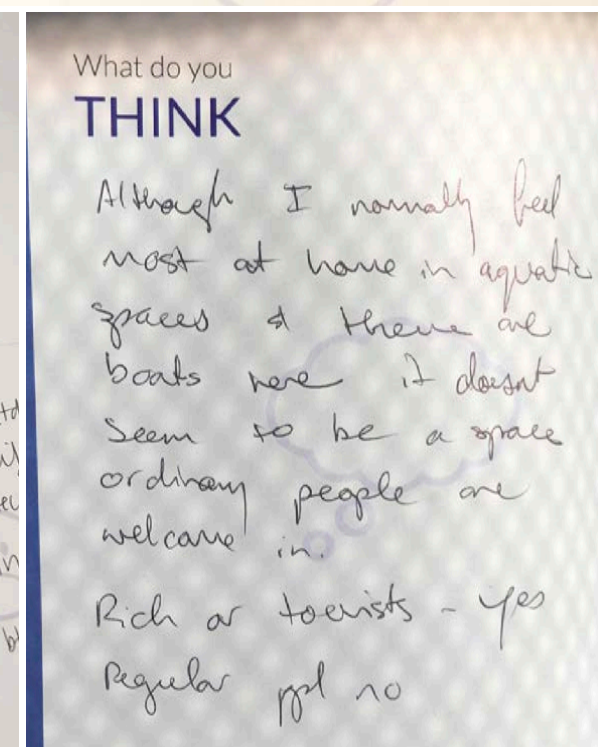 What do you
THINK
Although I normally feel
most at home in aquatic
spaces & there are
boats here it doesnt
seem to be a space
ordinary people are
welcome in.
Rich or tourists - yes
Regular ppl no